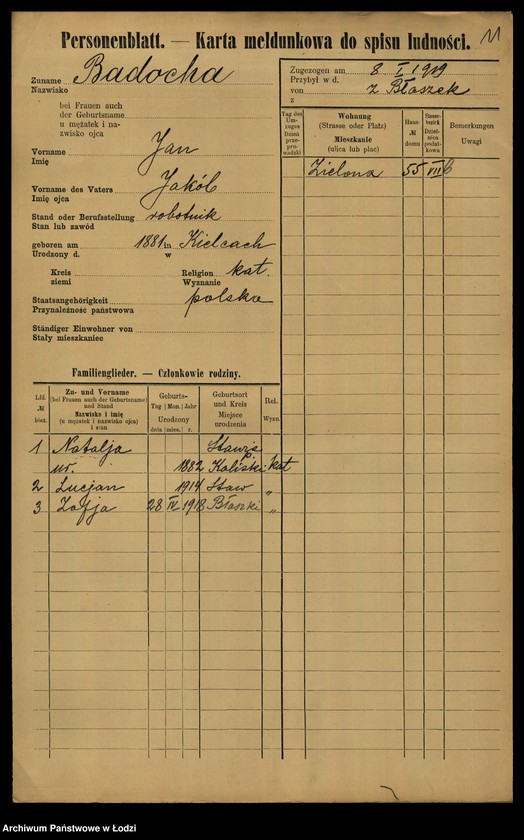 Personenblatt. — Karta meldunkowa do spisu ludności.
11
Zuname Badocha
Nazwisko
bei Frauen auch
der Geburtsname
u mężatek i na-
zwisko ojca
Vorname Jan
Imię
Vorname des Vaters Jakób
Imię ojca
Stand oder Berufsstellung robotnik
Stan lub zawód
geboren am 1881 in Kielcach
Urodzony d. w
Kreis Religion kat.
ziemi Wyznanie
Staatsangehörigkeit polska
Przynależność państwowa
Ständiger Einwohner von
Stały mieszkaniec
Zugezogen am 8 I 1919
Przybył w d.
von z Błaszek
z
Tag des Um-zuges Dzień prze-pro-wadzki
Wohnung (Strasse oder Platz) Mieszkanie (ulica lub plac)
Haus- № domu
Steuer-bezirk Dziel-nica podat-kowa
Bemerkungen Uwagi
Zielona 55 VII 6
Familienglieder. — Członkowie rodziny.
Lfd. № bież.
Zu- und Vorname (bei Frauen auch der Geburtsname) und Stand Nazwisko i imię (u mężatek i nazwisko ojca) i stan
Geburts- Tag Mon. Jahr Urodzony dnia mies. r.
Geburtsort und Kreis Miejsce urodzenia
Rel. Wyzn.
1 Natalja
ur. 1882 Kaliski kat
2 Lucjan 1914 Staw "
3 Zofja 28 IV 1918 Błaszki "
Archiwum Państwowe w Łodzi